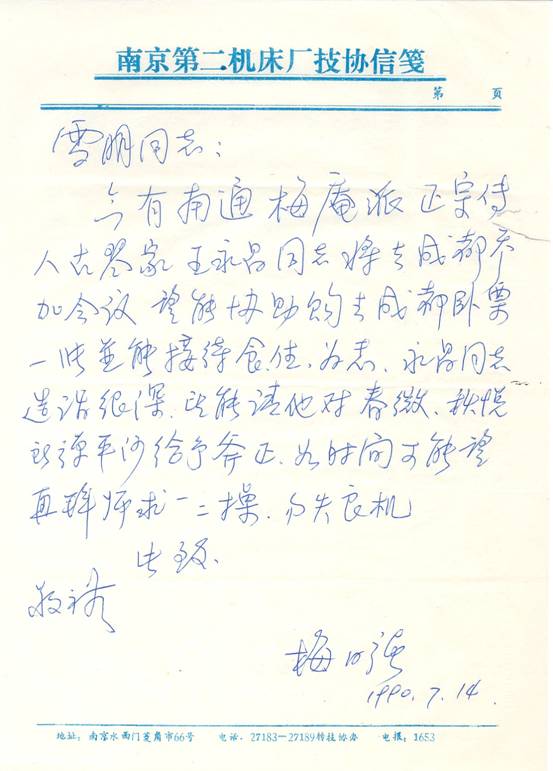 南京第二机床厂技协信笺
第 页
雪明同志：
今有南通梅庵派正宗传
人古琴家王永昌同志将去成都参
加会议 望能协助购去成都卧票
一张并能接待食住，为感．永昌同志
造诣很深．请他对春微、秋悦
平沙给予斧正．如时间可能望
再拜师求一二操．勿失良机
此致．
敬礼
梅曰强
1990.7.14.
地址：南京水西门菱角市66号 电话．27183—27189转技协办 电报：1653